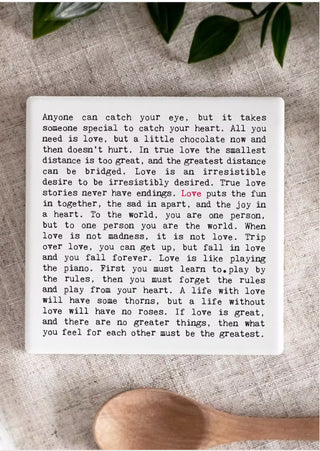 Anyone can catch your eye, but it takes
someone special to catch your heart. All you
need is love, but a little chocolate now and
then doesn't hurt. In true love the smallest
distance is too great, and the greatest distance
can be bridged. Love is an irresistible
desire to be irresistibly desired. True love
stories never have endings. Love puts the fun
in together, the sad in apart, and the joy in
a heart. To the world, you are one person,
but to one person you are the world. When
love is not madness, it is not love. Trip
over love, you can get up, but fall in love
and you fall forever. Love is like playing
the piano. First you must learn to play by
the rules, then you must forget the rules
and play from your heart. A life with love
will have some thorns, but a life without
love will have no roses. If love is great,
and there are no greater things, then what
you feel for each other must be the greatest.